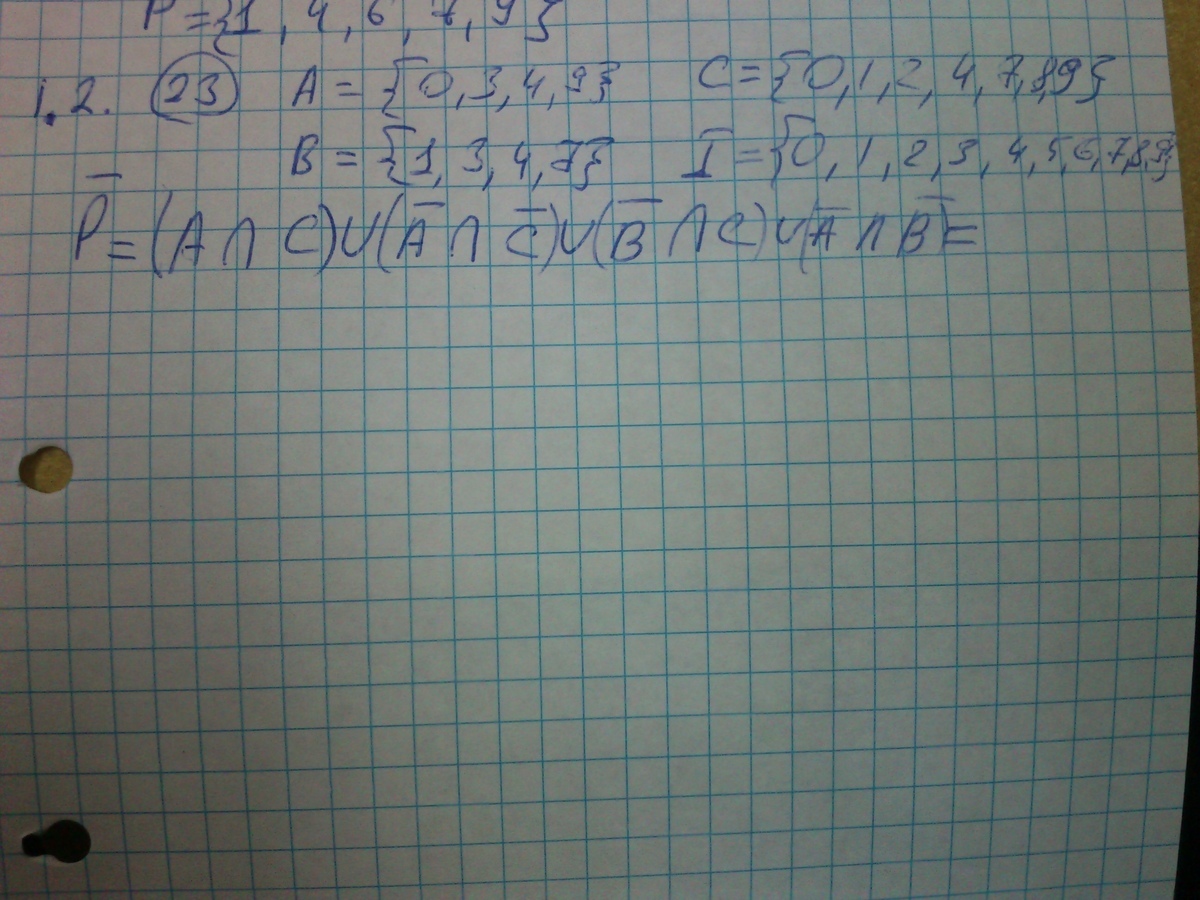 P={1,4,6,7,9}
1.2. 23 A={0,3,4,9} C={0,1,2,4,7,8,9}
B={1,3,4,7} I={0,1,2,3,4,5,6,7,8,9}
P̅=(A∩C)∪(A̅∩C̅)∪(B̅∩C)∪(A̅∩B̅)=